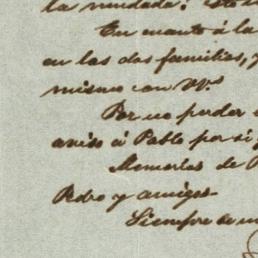 la mudada? esto
En cuanto á la
en las dos familias, y
mismo con VV.s
Por no poder
aviso á Pablo por si
Memorias de P
Pedro y amigos
Siempre de